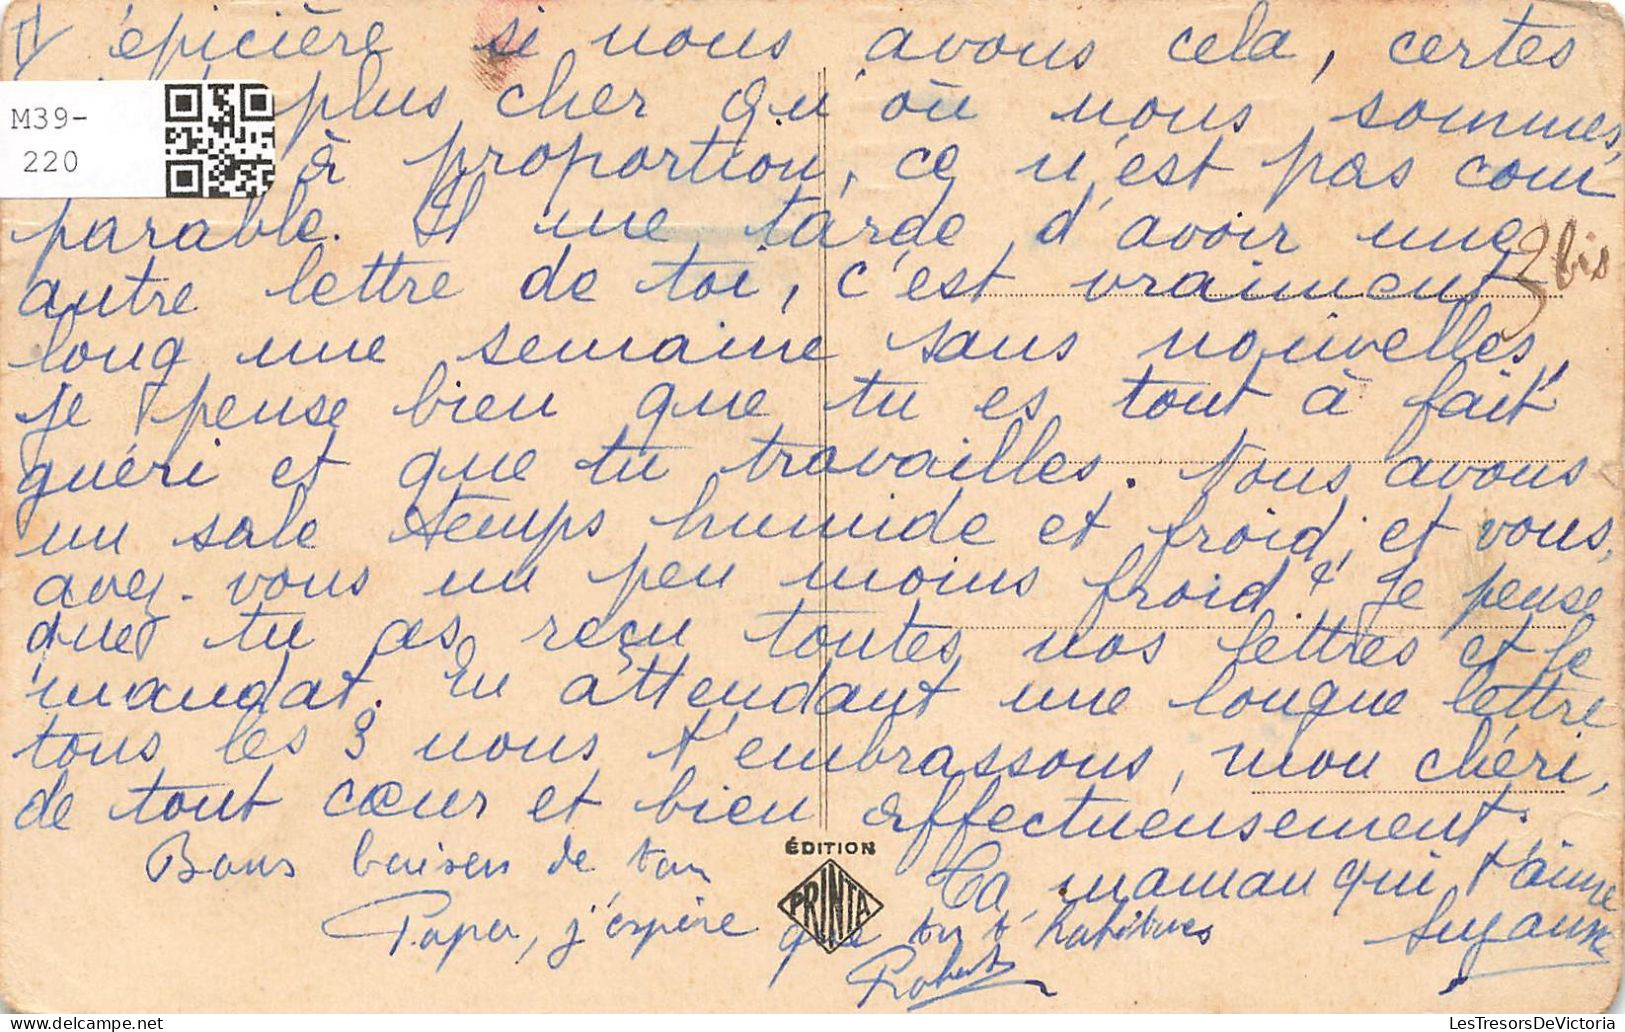 l'épicière si nous avons cela, certes
plus cher qu'où nous sommes,
à proportion, ce n'est pas com
parable. Il me tarde d'avoir une
autre lettre de toi, c'est vraiment
long une semaine sans nouvelles,
je pense bien que tu es tout à fait
guéri et que tu travailles. Nous avons
un sale temps humide et froid, et vous,
avez-vous un peu moins froid? Je pense
que tu as reçu toutes nos lettres et le
mandat. En attendant une longue lettre
tous les 3 nous t'embrassons, mon chéri,
de tout cœur et bien affectueusement.
Ta maman qui t'aime
Suzanne
Bons baisers de ton
Papa, j'espère que tu t'habitues
Robert
3 bis
M39-
220
ÉDITION
PRINTA
LesTresorsDeVictoria